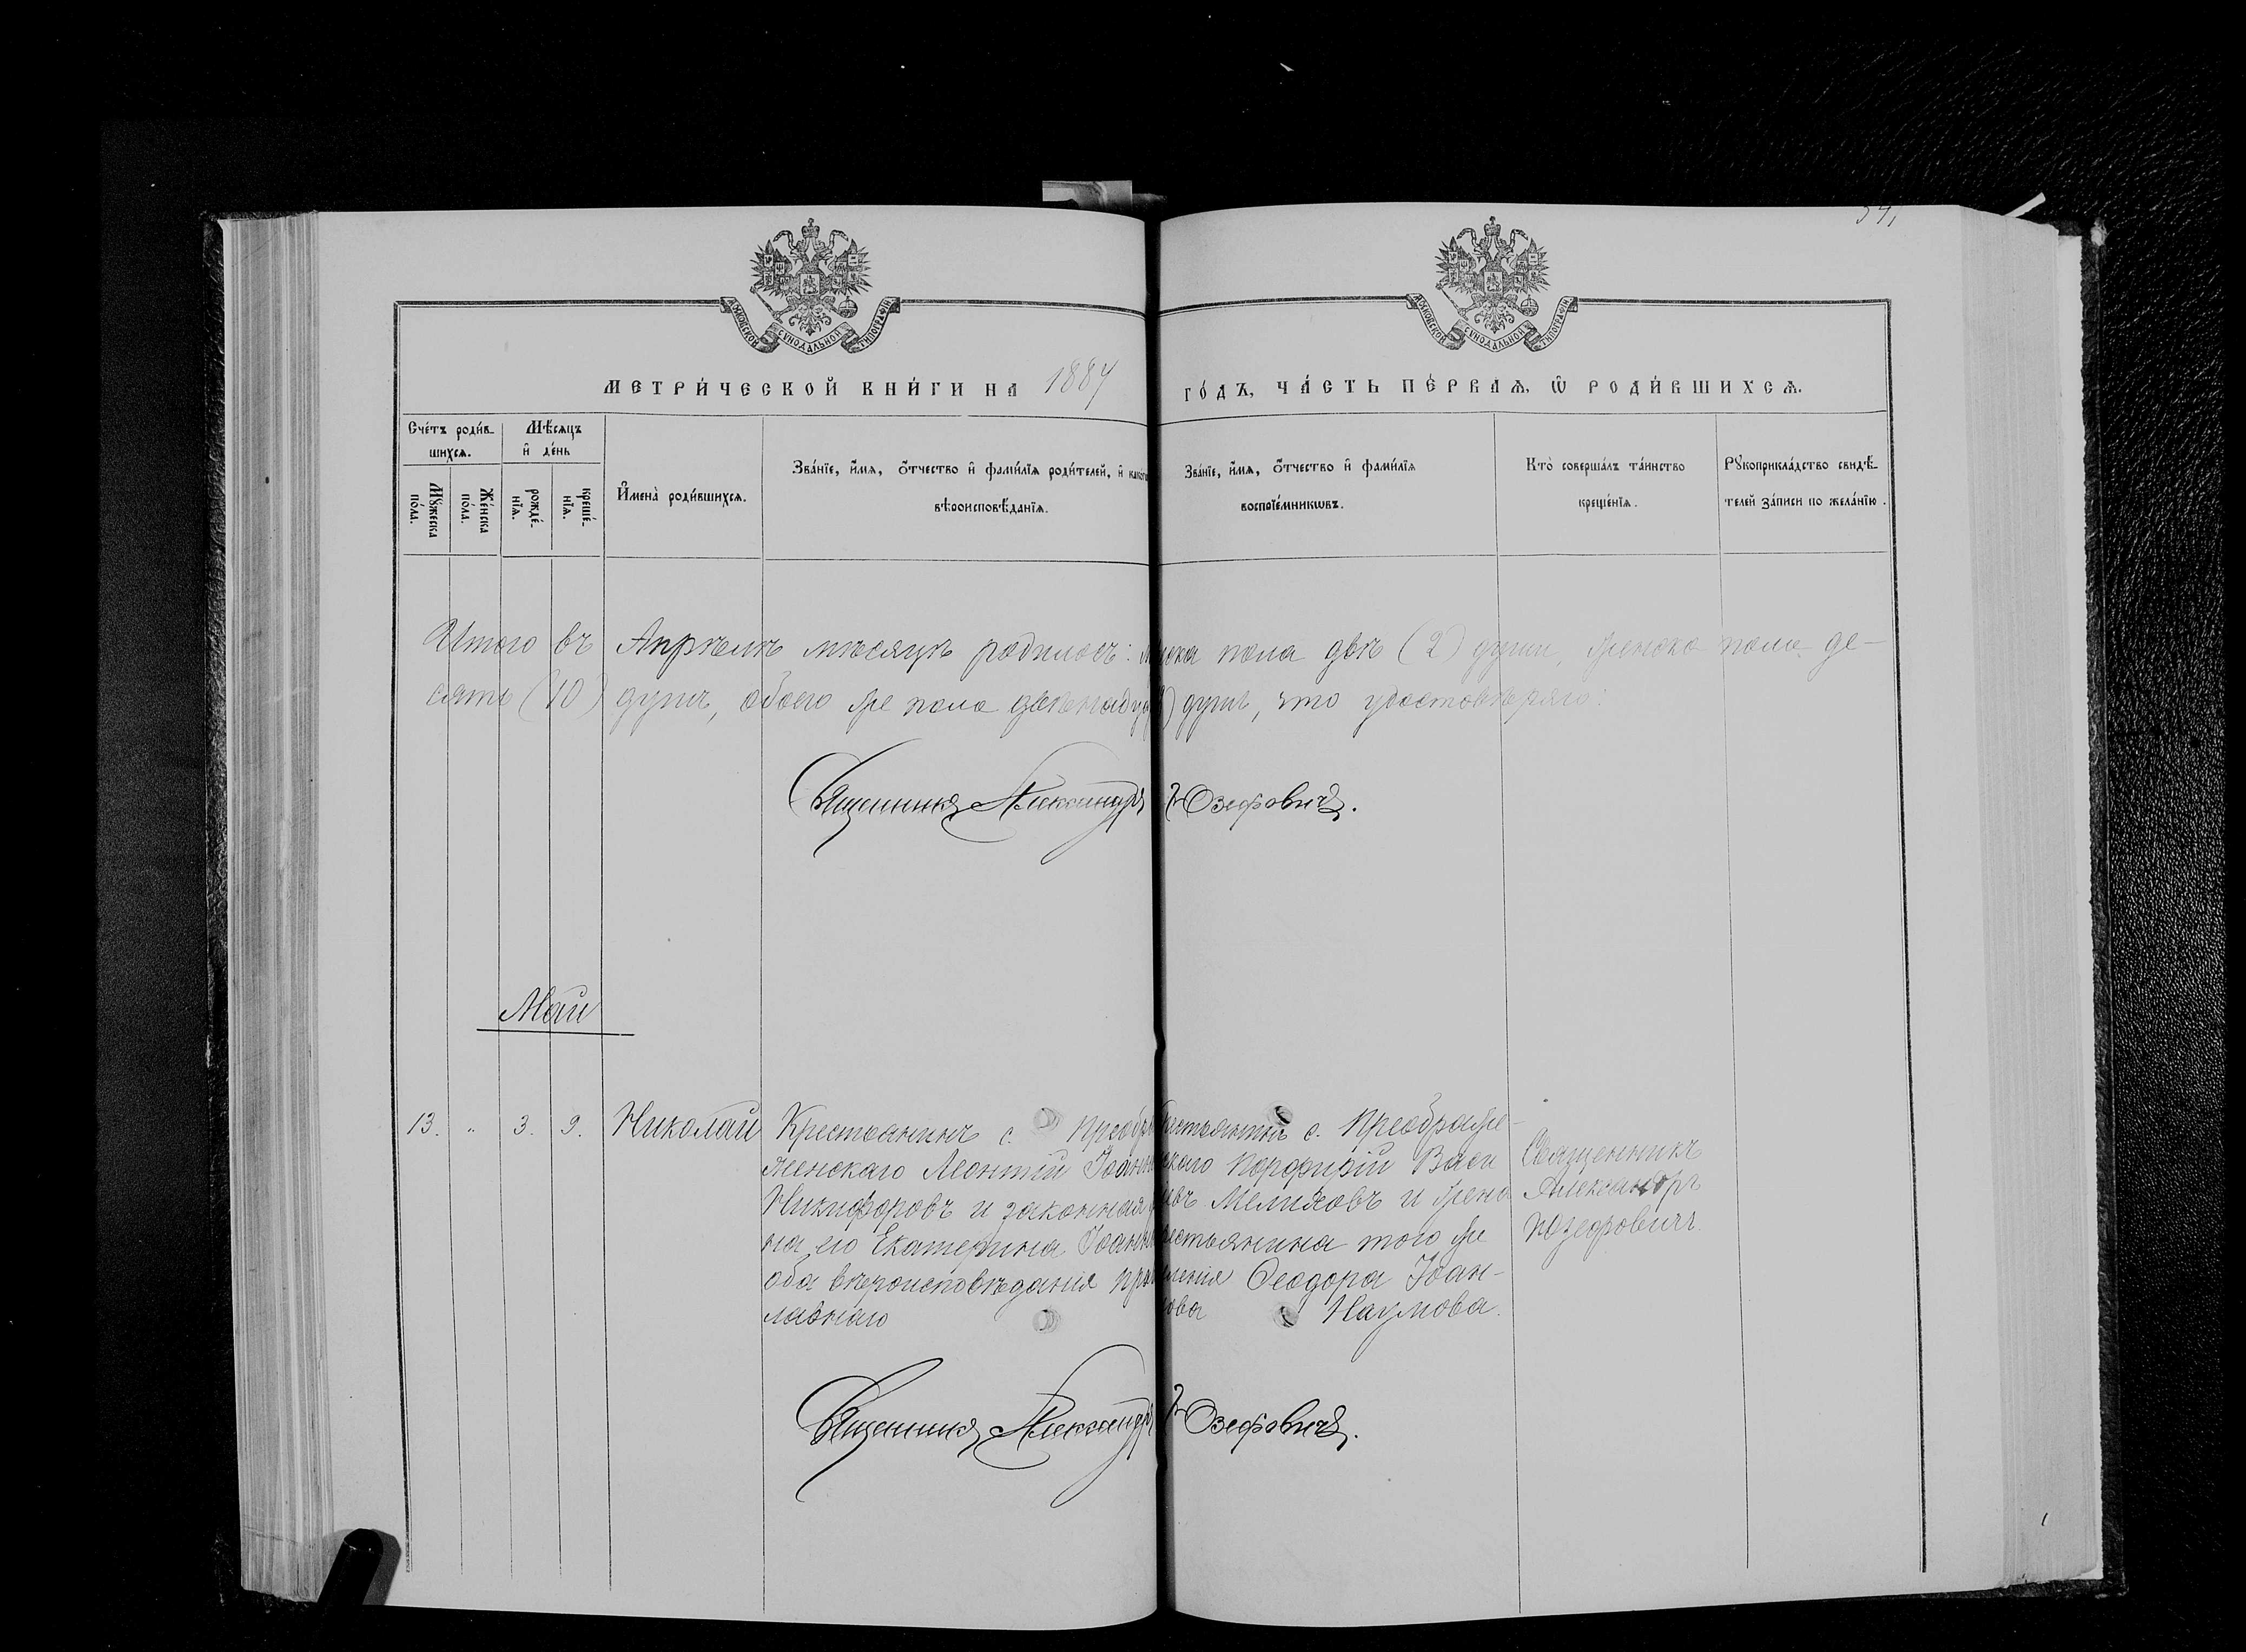 54,
МОСКОВСКОЙ СУНОДАЛЬНОЙ ТИПОГРАФІИ
МОСКОВСКОЙ СУНОДАЛЬНОЙ ТИПОГРАФІИ
МЕТРИ́ЧЕСКОЙ КНИ́ГИ НА 1887 ГО́ДЪ, ЧА́СТЬ ПЕ́РВАѦ, Ѽ РОДИ́ВШИХСѦ.
Сче́тъ роди́в-
шихсѧ.
Мѣ́сѧцъ
и҆ де́нь
Мꙋ́жеска
по́ла.
Же́нска
по́ла.
рожде́-
нїѧ.
креще́-
нїѧ.
И҆мена̀ роди́вшихсѧ.
Зва́нїе, и҆́мѧ, ѻ҆́тчество и҆ фами́лїѧ роди́телей, и҆ како́гѡ
вѣроисповѣ́данїѧ.
Зва́нїе, и҆́мѧ, ѻ҆́тчество и҆ фами́лїѧ
воспрїе́мникѡвъ.
Кто̀ соверша́лъ та́инство
креще́нїѧ.
Рꙋкоприкла́дство свидѣ́-
телей за́писи по жела́нїю.
Итого въ Апрѣлѣ мѣсяцѣ родилось: муска пола двѣ (2) души, женска пола де-
сять (10) душъ, обоего же пола двѣнадца) душъ, что удостовѣряю:
Священникъ Александръ Юзефовичъ.
Май
13. „ 3. 9. Николай
Крестьянинъ с. Преобра
женскаго Леонтій Іоанн
Никифоровъ и законная
на его Екатерина Іоанн
оба вѣроисповѣданія прав
лавнаго
рестьянинъ с. Преображе-
скаго Порфирій Васи
евъ Мелиховъ и жена
рестьянина того же
ленія Ѳеодора Іоан-
нова Наумова.
Священникъ
Александръ
Юзефовичъ.
Священникъ Александръ Юзефовичъ.